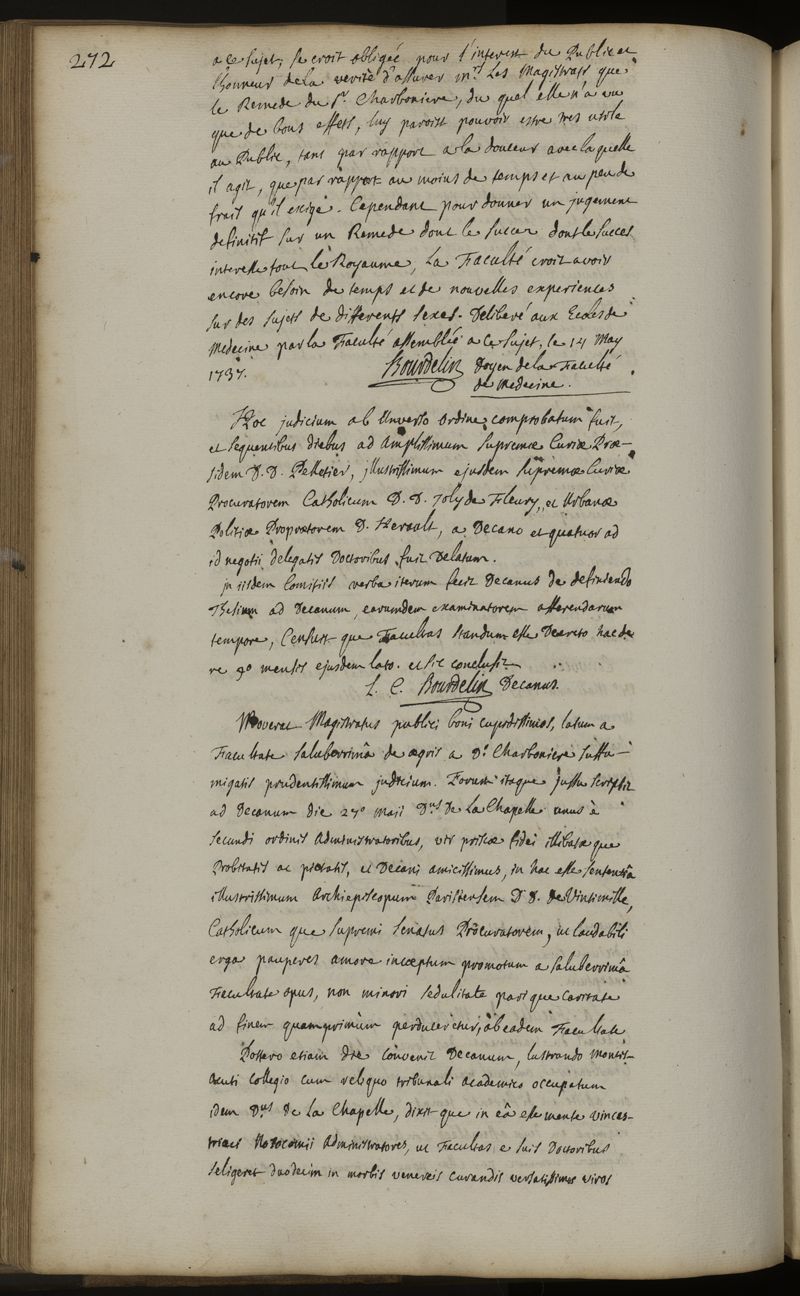 272
a ce sujet, se croit obligée pour l'interest du Public et
l'honneur de la verité d'assurer mrs Les Magistrats que
le Remede du Sr. Charboniere, du quel elle n'a vu
que de bons effets, luy paroist pouvoir estre tres utile
au Public, tant par rapport a la douceur avec laquelle
il agit, que par rapport au moins de temps et au peu de
frais qu'il exige. Cependant pour donner un jugement
definitif sur un Remede dont le succez dont le succes
interesse tout le Royaume, La Faculté croit avoir
encore besoin de temps et de nouvelles experiences
sur des sujets de differents sexes. Deliberé aux Ecoles de
Medecine par la Faculté assemblée a ce sujet, le 14 May
1737. Bourdelin Doyen de la Faculté
de Medecine.
Hoc judicium ab Universo Ordine comprobatum fuit,
et sequentibus diebus ad Amplissimum supremæ Curiæ Præ-
sidem D. D. Pelletier, jllustrissimum ejusdem supremæ Curiæ
Procuratorem Catholicum D. D. Joly de Fleury, et Urbanæ
Politiæ Proprætorem D. Herault, a Decano et quatuor ad
id negotii delegatis Doctoribus fuit Delatum.
jn iisdem Comitiis verba iterum fecit Decanus de definiendo
Thesium ad Decanum, earumdem examinatorem afferendarum
tempore, Censuit que Facultas standum esse Decreto hac de
re 9o mensis ejusdem lato. et sic conclusit
L. C. Bourdelin Decanus.
Moverat Magistratus publici boni cupidissimos, latum a
Facultate saluberrimâ de ægris a Do. Charboniere suffu-
migatis prudentissimum judicium. Eorum itaque jussu scripsit
ad Decanum die 27o maii Dnus De La Chapelle unus à
secundi ordinis Administratoribus, vir priscæ fidei illibatæ que
Probitatis ac pietatis, et Decani amicissimus, in hac esse sententiâ
illustrissimum Archiepiscopum Parisiensem D. D. de Vintimille,
Catholicum que supremi senatus Procuratorem, ut laudabili
erga pauperes amore inceptum promotum a saluberrimâ
Facultate opus, non minori sedulitate pari que caritate
ad finem quamprimùm perduceretur, ab eadem Facultate
Postero etiam die convenit Decanum, lustrando montis
Acuti collegio cum reliquo tribunali academico occupatum
idem Dnus De La Chapelle, dixit que in eâ esse mente vinces-
triaei Nosocomii Administratores, ut Facultas e suis Doctoribus
seligeret duodecim in morbis venereis curandis versatissimos viros